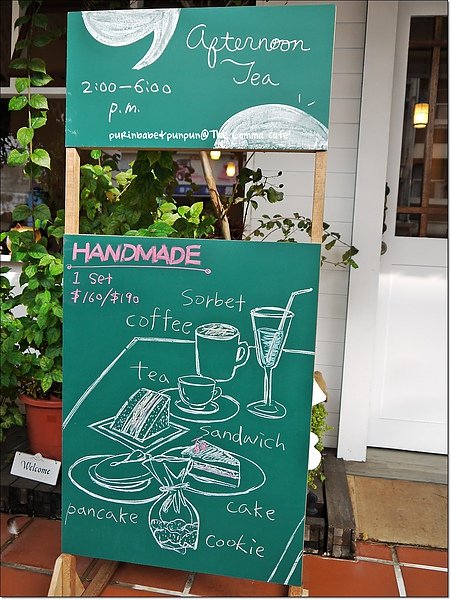 Afternoon
Tea
2:00-6:00
p.m.
purinbabe&punpun@The Comma Cafe'
HANDMADE
1 Set
$160/$190
Sorbet
coffee
tea
Sandwich
pancake
cake
Cookie
Welcome